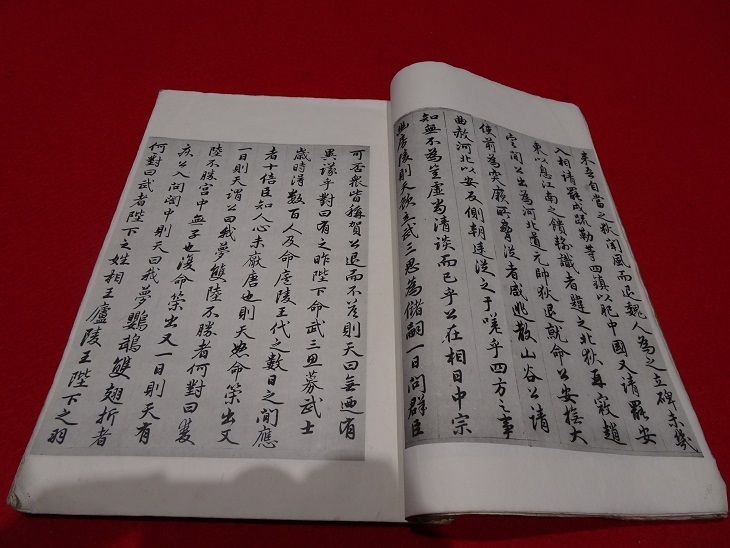 来吾自當之狄聞風而退魏人為之立碑未幾
入相請罷戍疏勒等四鎮以肥中國又請罷安
東以息江南之饋輸識者韙之北狄再寇趙
定間公出為河北道元帥狄退就命公安撫大
使前為突厥所脅從者咸逃散山谷公請
曲赦河北以安反側朝廷從之于嗟乎四方之事
知無不為豈虛尚清談而已乎公在相日中宗
幽房陵則天欲立武三思為儲嗣一日問群臣
可否衆皆稱賀公退而不荅則天曰無迺有
異議乎對曰有之昨陛下命武三思募武士
歳時得數百人及命廬陵王代之數日之間應
者十倍臣知人心未厭唐也則天怒命策出又
一日則天謂公曰我夢雙陸不勝者何對曰雙
陸不勝宮中無子也復命策出又一日則天有
疾公入問閤中則天曰我夢鸚鵡雙翅折者
何對曰武者陛下之姓相王廬陵王陛下之羽